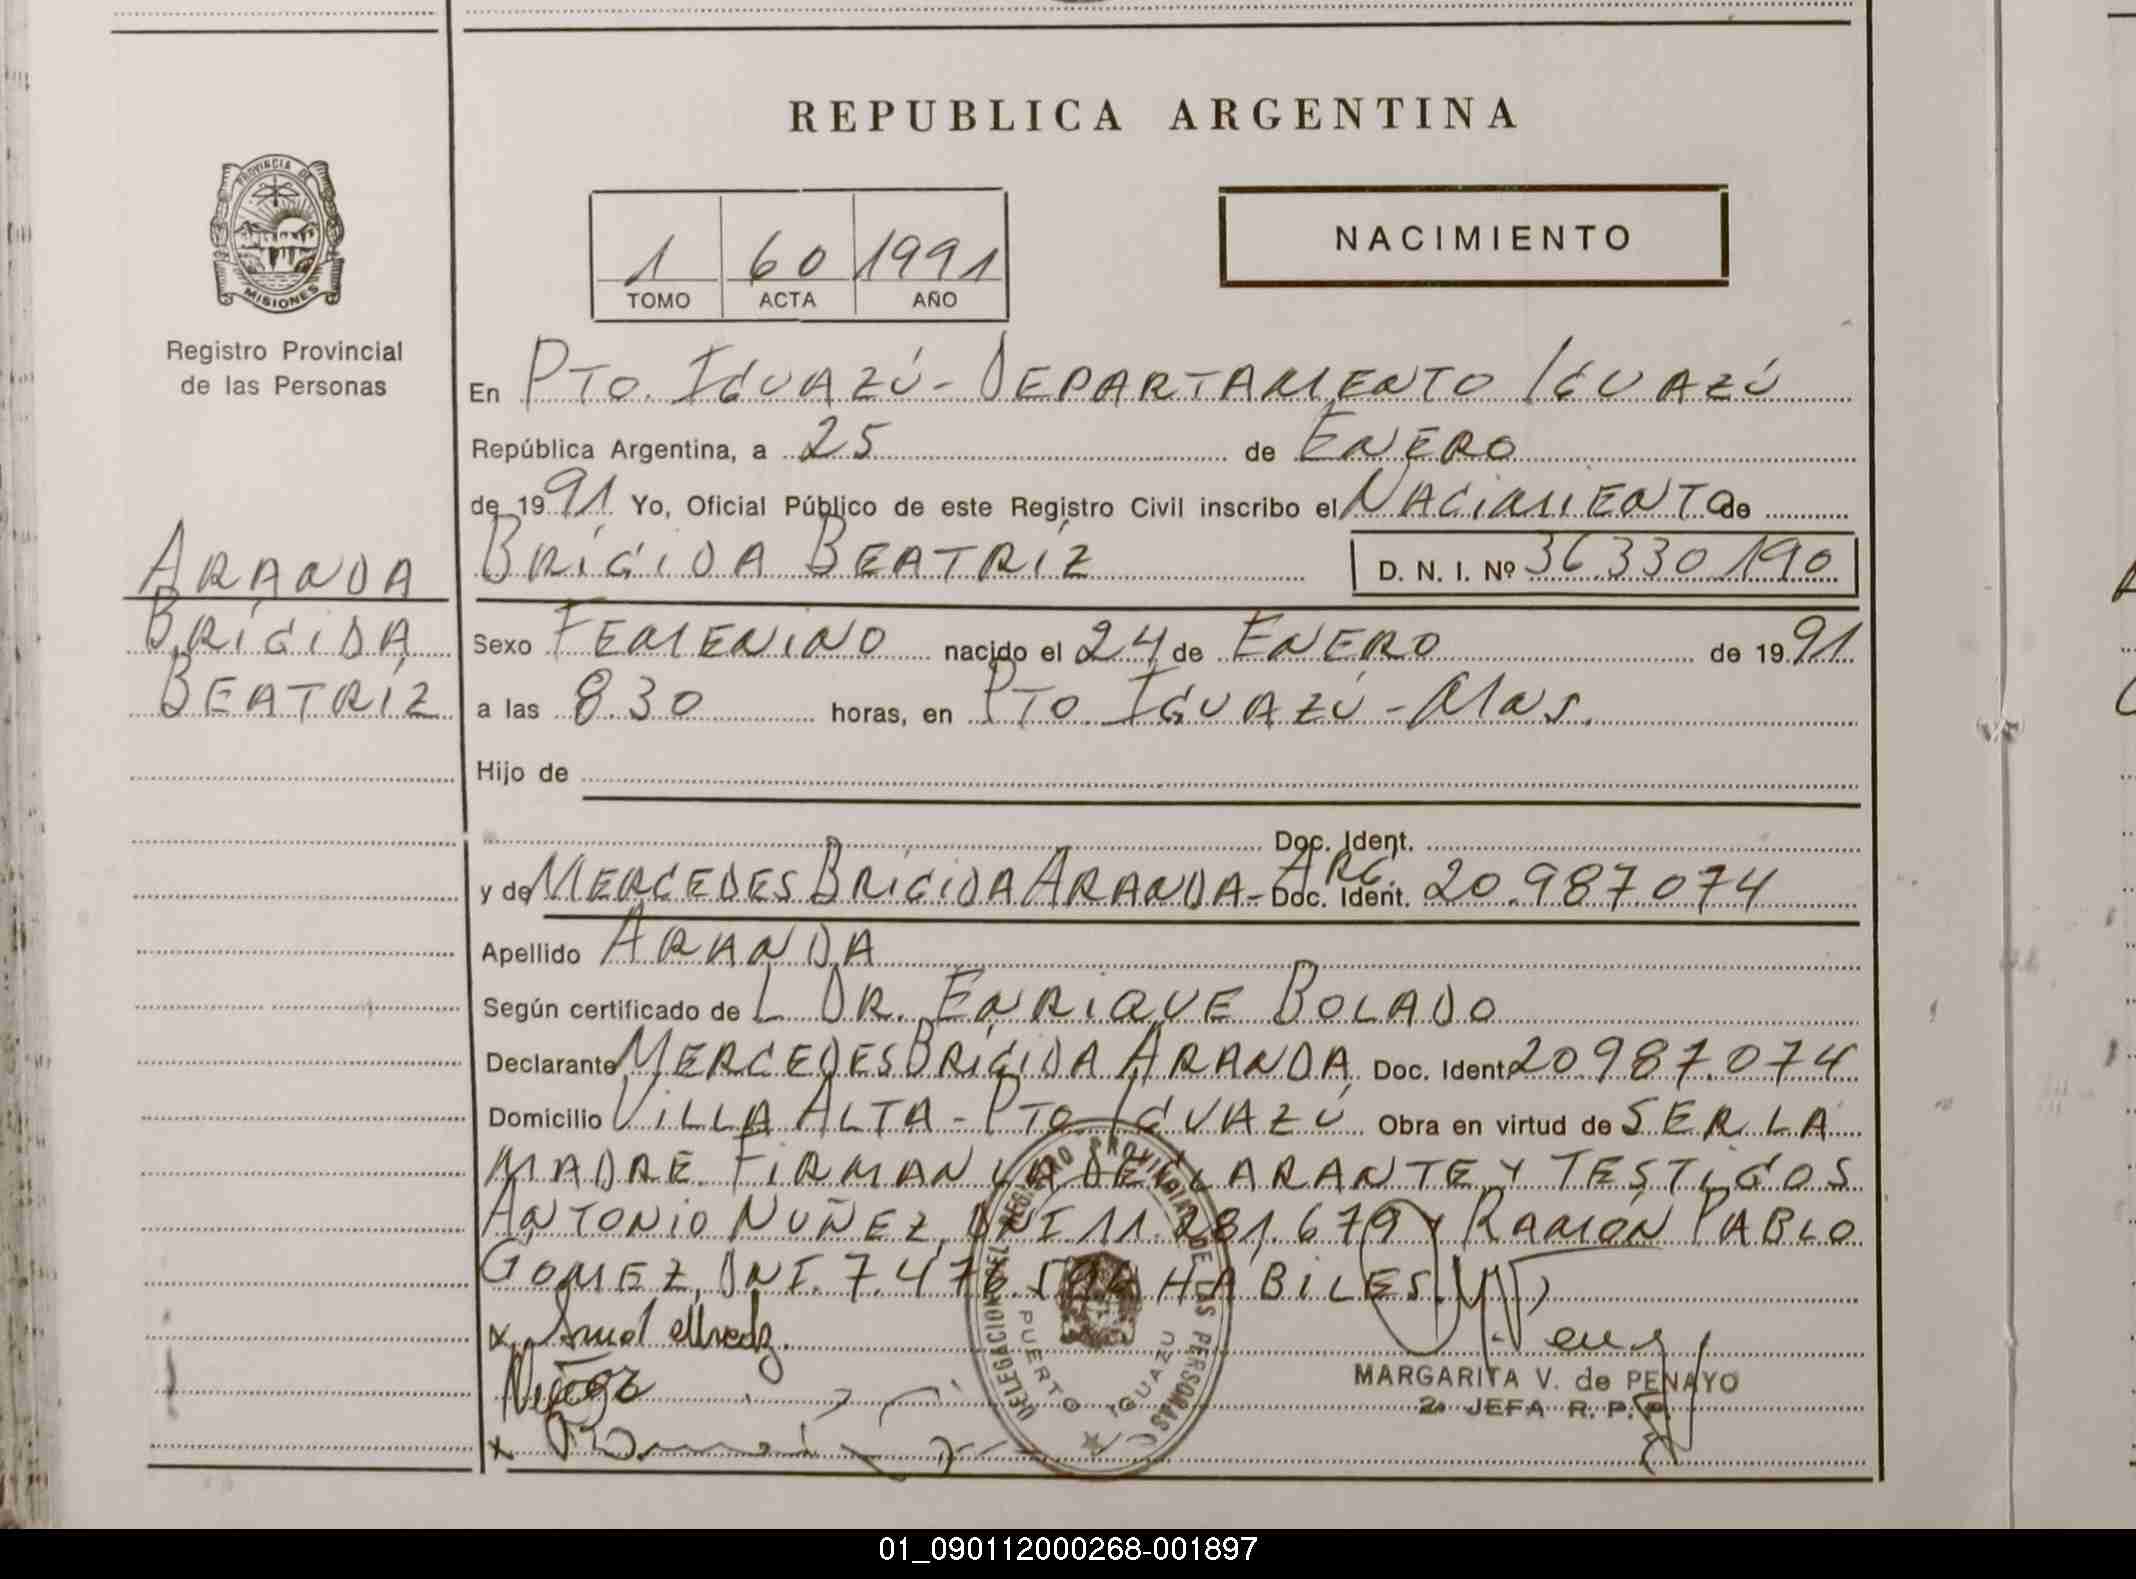 REPUBLICA ARGENTINA
PROVINCIA DE
MISIONES
Registro Provincial
de las Personas
1 60 1991
TOMO ACTA AÑO
NACIMIENTO
En PTO. IGUAZÚ - DEPARTAMENTO IGUAZÚ
República Argentina, a 25 de ENERO
de 1991 Yo, Oficial Público de este Registro Civil inscribo el NACIMIENTO de
BRÍGIDA BEATRÍZ D. N. I. Nº 36.330.190
ARANDA
BRÍGIDA
BEATRÍZ
Sexo FEMENINO nacido el 24 de ENERO de 1991
a las 8.30 horas, en PTO. IGUAZÚ - Mns.
Hijo de
Doc. Ident.
y de MERCEDES BRÍGIDA ARANDA - Doc. Ident. ARG. 20.987.074
Apellido ARANDA
Según certificado de L DR. ENRIQUE BOLADO
Declarante MERCEDES BRÍGIDA ARANDA Doc. Ident. 20.987.074
Domicilio VILLA ALTA - PTO. IGUAZÚ Obra en virtud de SER LA
MADRE. FIRMAN LA DECLARANTE Y TESTIGOS
ANTONIO NUÑEZ, DNI 11.281.679 Y RAMÓN PABLO
GOMEZ, DNI. 7.476. HÁBILES.
DELEGACION DEL REGISTRO PROVINCIAL DE LAS PERSONAS
PUERTO IGUAZU
x
Nuñez
MARGARITA V. de PENAYO
2a JEFA R. P. P.
x
01_090112000268-001897